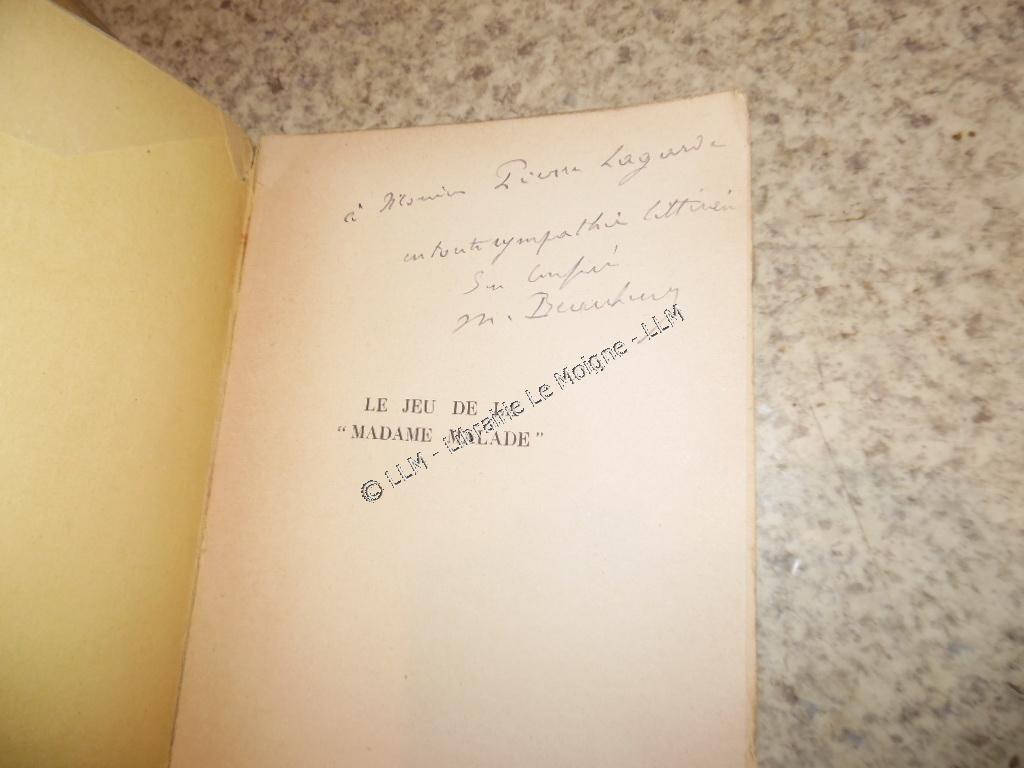 à Monsieur Pierre Lagarde
en toute sympathie littéraire
Son confrère
M.
LE JEU DE LA
“MADAME MALADE”
© LLM - Librairie Le Moigne - LLM